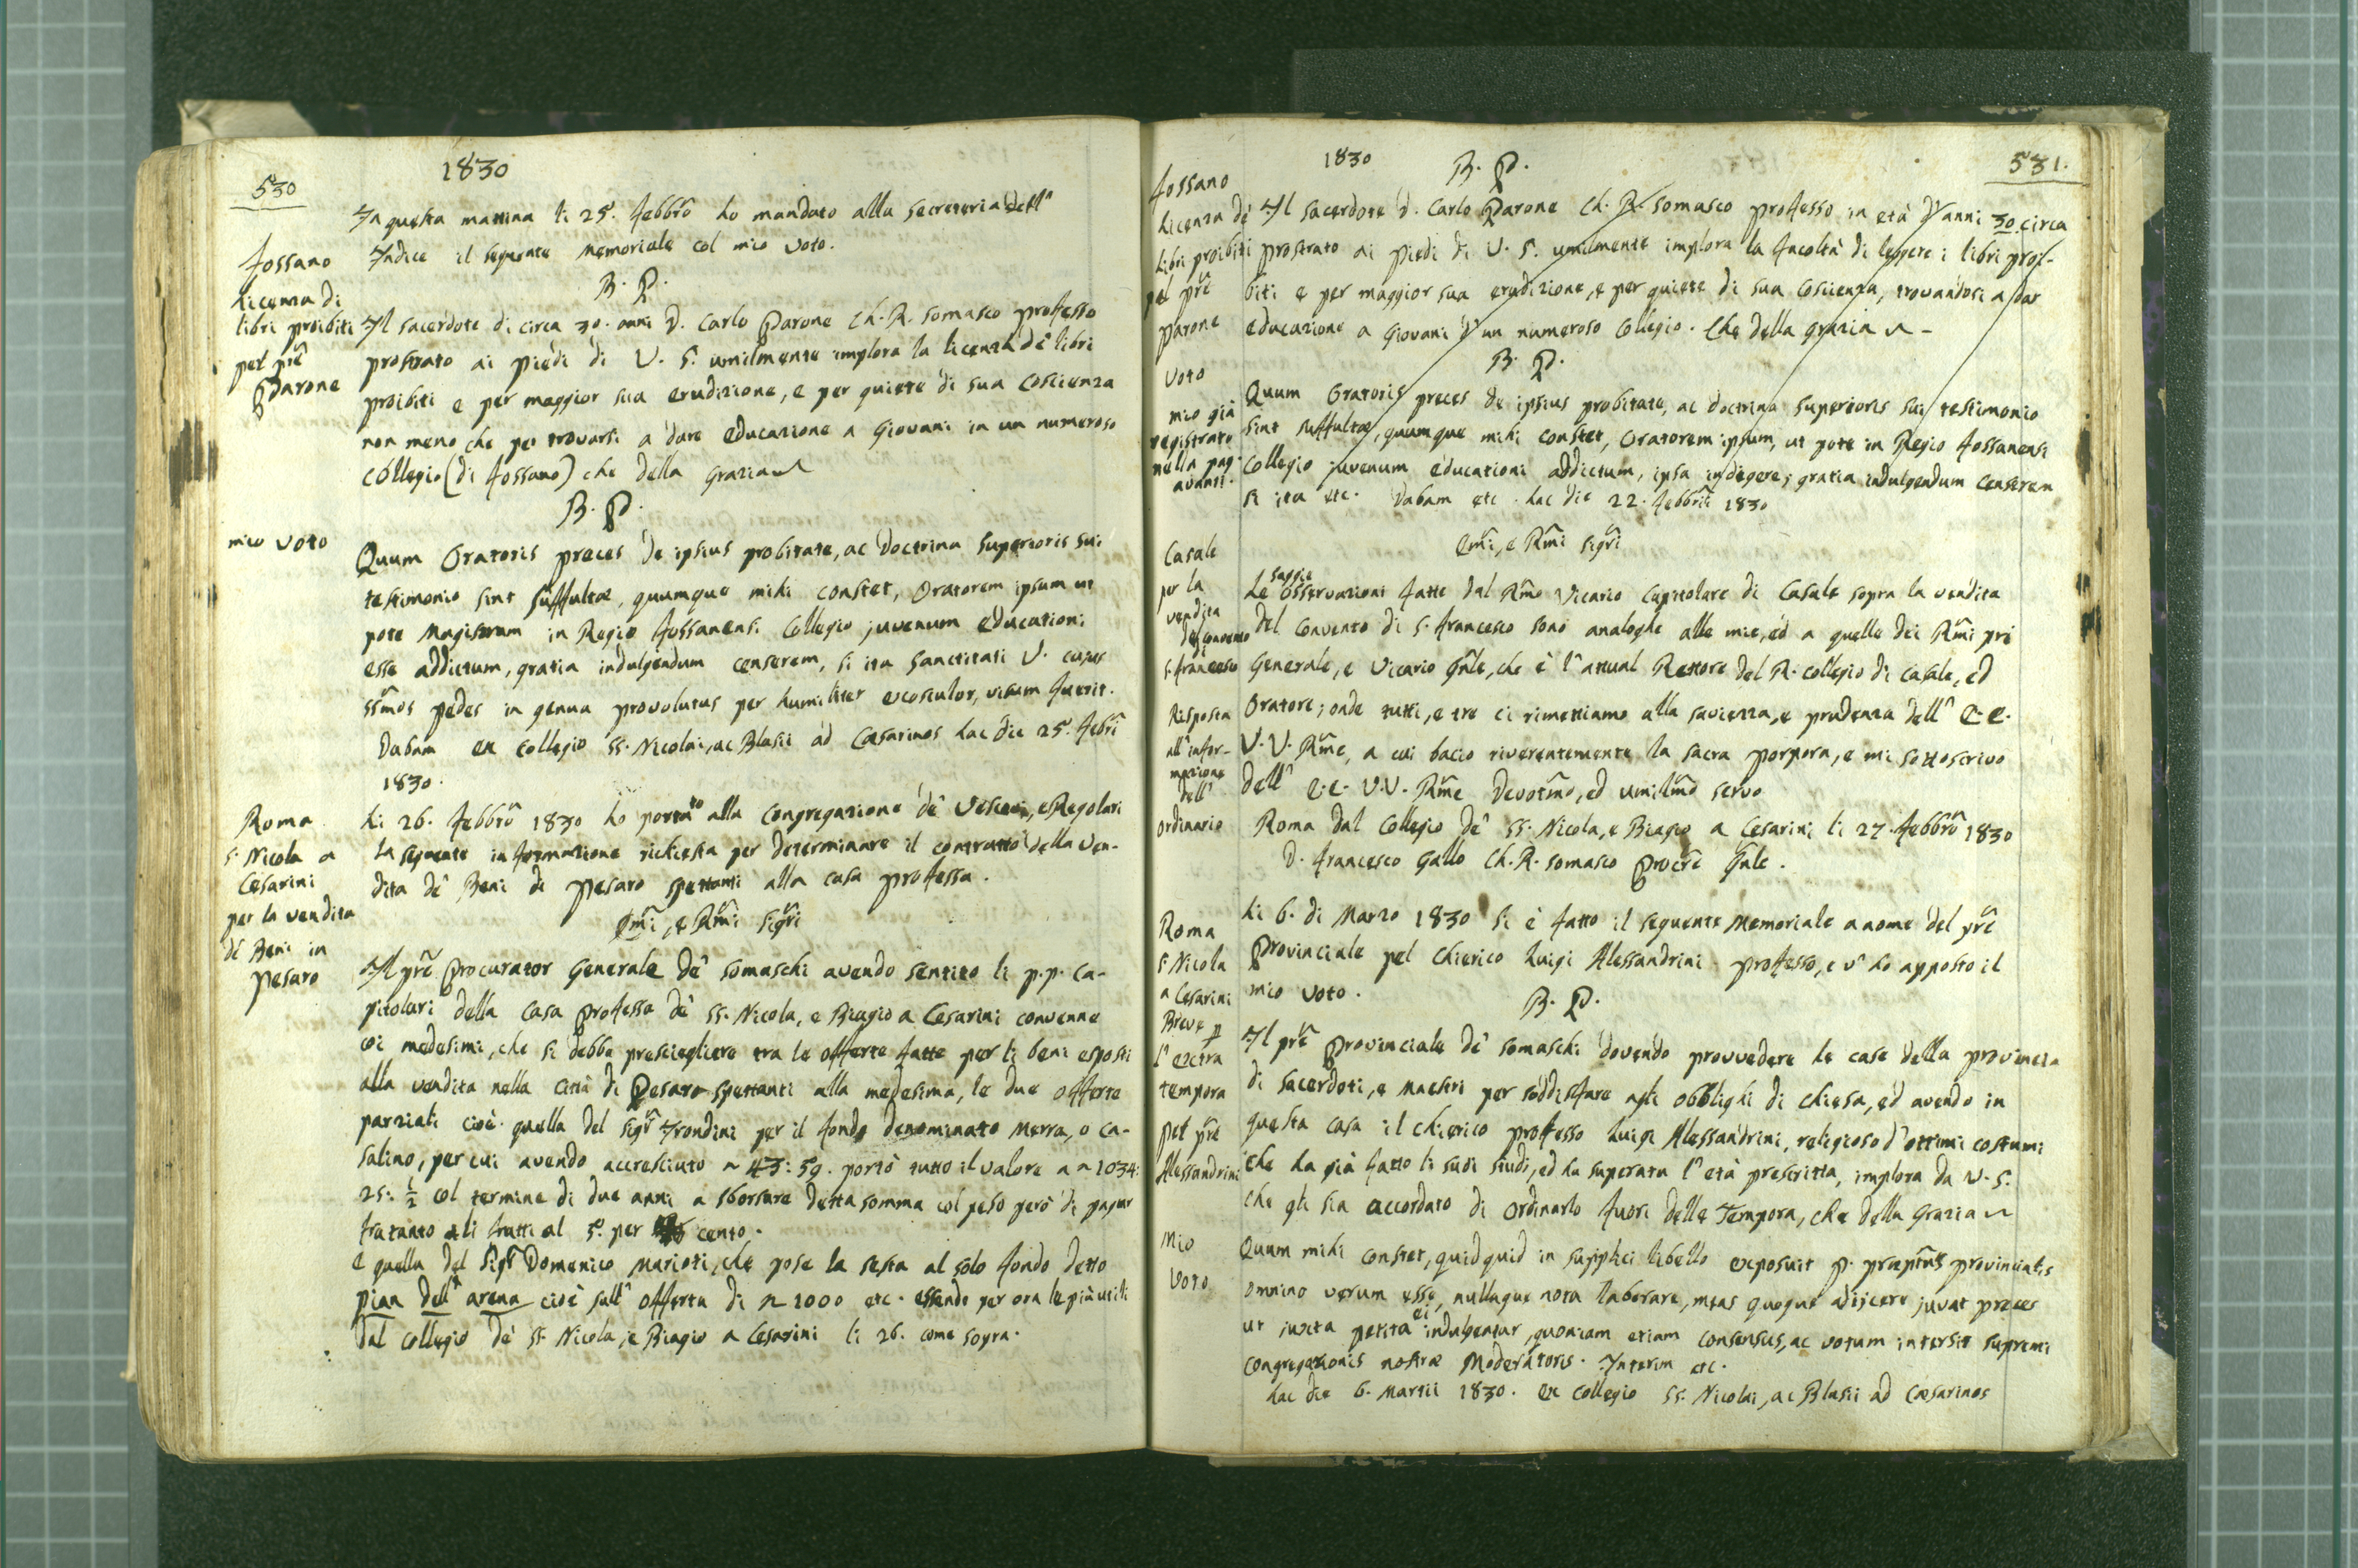 530
1830
In questa mattina li 25. febbrō ho mandato alla secreteria dell'
Indice il seguente memoriale col mio voto.
Fossano
Licenza di
libri proibiti
pel pr̄e
Parone
B. P.
Il sacerdote di circa 30. anni D. Carlo Parone Ch. R. somasco professo
prostrato ai piedi di V. S. umilmente implora la licenza de' libri
proibiti e per maggior sua erudizione, e per quiete di sua coscienza
non meno che per trovarsi a dare educazione a Giovani in un numeroso
collegio (di Fossano) che della Grazia
B. P.
mio voto
Quum Oratoris preces de ipsius probitate, ac doctrina superioris sui
testimonio sint suffultæ, quumque mihi constet, Oratorem ipsum ut
pote Magistrum in Regio Fossanensi Collegio juvenum educationi
esse addictum, gratia indulgendum censerem, si ita Sanctitati V. cujus
ss̄mos pedes in genua provolutus per humiliter exosculor, visum fuerit.
Dabam ex Collegio SS. Nicolai, ac Blasii ad Cæsarinos hac die 25. febr̄i
1830.
Roma
S. Nicola a
Cesarini
per la vendita
de' Beni in
Pesaro
Li 26. febbrō 1830 ho portato alla Congregazione de' Vescovi, e Regolari
la seguente informazione richiesta per determinare il contratto della ven-
dita de' Beni di Pesaro spettanti alla casa professa.
Em̄i, e Rm̄i Sigr̄i
Il pr̄e Procurator Generale de' Somaschi avendo sentito li p.p. ca-
pitolari della Casa professa de' SS. Nicola, e Biagio a Cesarini convenne
coi medesimi, che si debba presciegliere tra le offerte fatte per li beni esposti
alla vendita nella città di Pesaro spettanti alla medesima, le due offerte
parziali cioè quella del sigr̄ Trondini per il fondo denominato Merra, o Ca-
salino, per cui avendo accresciuto ~ 43: 59. portò tutto il valore a ~ 1034:
25: ½ col termine di due anni a sborsare detta somma col peso però di pagar
fratanto li frutti al 5. per cento.
e quella del Sigr̄ Domenico Marioti, che pose la sesta al solo fondo detto
pian dell' arena cioè sull' offerta di ~ 1000 etc. essendo per ora le più utili
Dal Collegio de' SS. Nicola, e Biagio a Cesarini li 26. come sopra.
1830
531.
Fossano
Licenza de'
libri proibiti
pel pr̄e
Parone
B. P.
Il sacerdote D. Carlo Parone Ch. R. Somasco professo in età d'anni 30 circa
prostrato ai piedi di V. S. umilmente implora la facoltà di leggere i libri proi-
biti e per maggior sua erudizione, e per quiete di sua coscienza, trovandosi a dar
educazione a Giovani d'un numeroso Collegio. Che della grazia
B. P.
Voto
mio già
registrato
nella pag.
avanti.
Quum Oratoris preces de ipsius probitate, ac doctrina superioris sui testimonio
sint suffultæ, quumque mihi constet, Oratorem ipsum, ut pote in Regio Fossanensi
Collegio juvenum educationi addictum, ipsa indigere, gratia indulgendum censerem
si ita etc. Dabam etc. hac die 22. febbrii 1830
Em̄i, e Rm̄i sigr̄i
Casale
per la
vendita
del convento
S. Francesco
Risposta
all'infor-
mazione
dell'
ordinario
Le saggie osservazioni fatte dal Rm̄o Vicario Capitolare di Casale sopra la vendita
del Convento di S. Francesco sono analoghe alle mie, ed a quelle dei Rm̄i pri
Generale, e Vicario Gn̄le, che è l'attual Rettore del R. Collegio di Casale, ed
Oratore; onde tutti, e tre ci rimettiamo alla saviezza, e prudenza dell' E.E.
V.V. Rm̄e, a cui bacio riverentemente la sacra porpora, e mi sottoscrivo
Dell' E.E. V.V. Rm̄e Devotm̄o, ed umilm̄o servo
Roma dal Collegio de' SS. Nicola, e Biagio a Cesarini li 27. febbrō 1830
D. Francesco Gallo Ch. R. Somasco Procr̄e Gn̄le.
Roma
S. Nicola
a Cesarini
Breve p
l'extra
tempora
pel pr̄e
Alessandrini
Li 6. di Marzo 1830 si è fatto il seguente Memoriale a nome del pr̄e
Provinciale pel chierico Luigi Alessandrini professo, e v'ho apposto il
mio voto.
B. P.
Il pr̄e Provinciale de' Somaschi dovendo provvedere le case della provincia
di Sacerdoti, e Maestri per soddisfare agli obblighi di chiesa, ed avendo in
questa casa il chierico professo Luigi Alessandrini, religioso d'ottimi costumi
che ha già fatto li suoi studi, ed ha superata l'età prescritta, implora da V. S.
che gli sia accordato di ordinarlo fuori delle Tempora, che della Grazia
Mio
voto
Quum mihi constet, quidquid in supplici libello exposuit p. præptus provincialis
omnino verum esse, nullaque nota laborare, meas quoque adjicere juvat preces
ut juxta petita ei indulgeatur, quoniam etiam consensus, ac votum intersit supremi
congregationis nostræ Moderatoris. Interim etc.
hac die 6. Martii 1830. ex Collegio SS. Nicolai, ac Blasii ad Cæsarinos